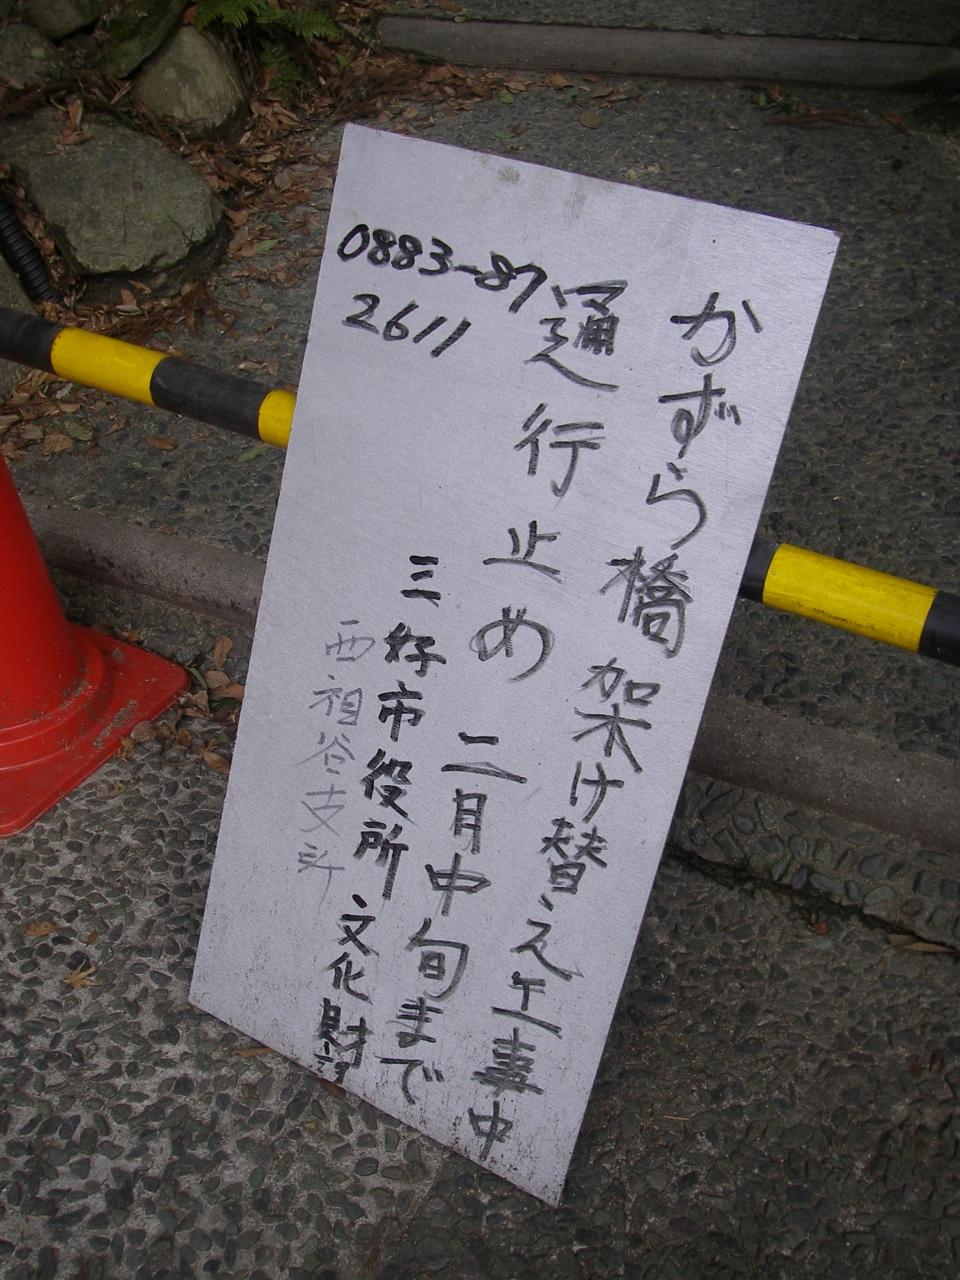 かずら橋架け替え工事中
通行止め 二月中旬まで
三好市役所 文化財
西祖谷支
0883-87
2611